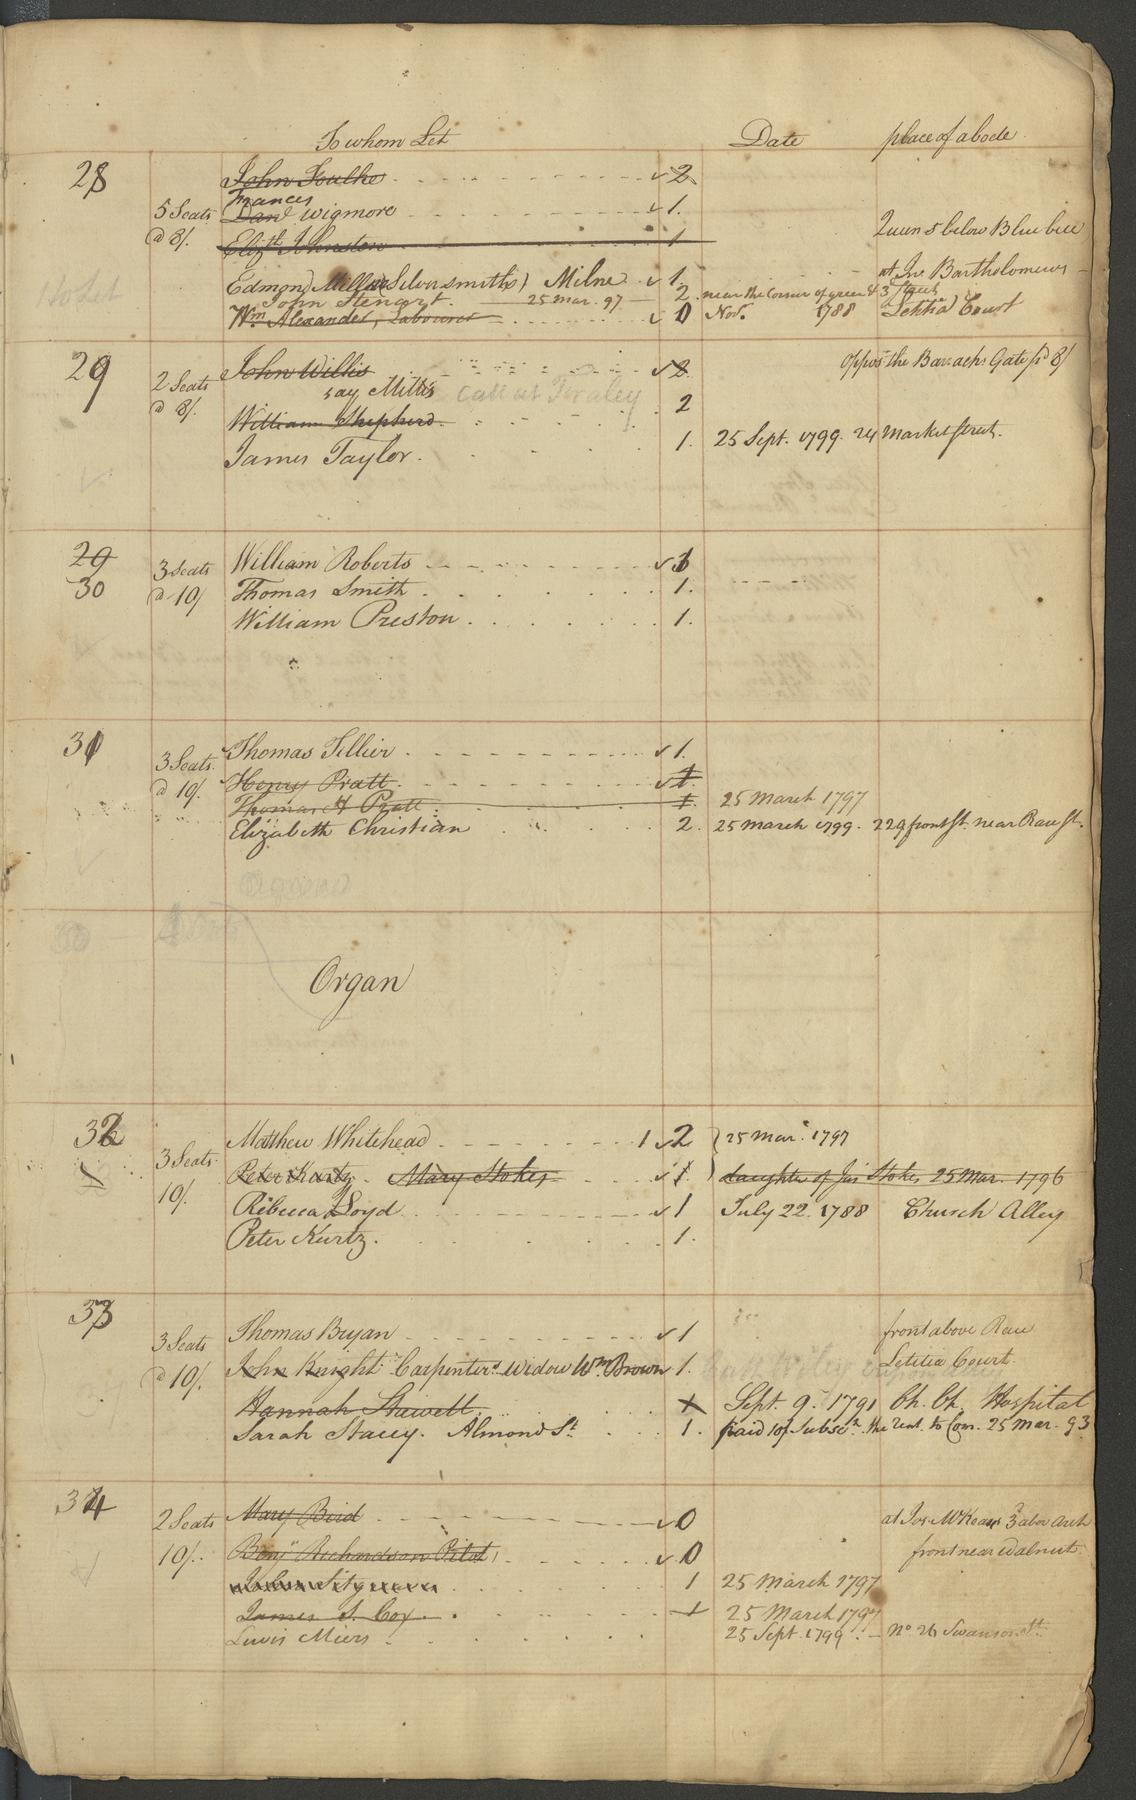 To whom Let Date place of abode
28 John Foulke 2
Frances
5 Seats Danl Wigmore 1. Queen 5 below Blue bell
@ 8/. Elizth Johnston 1
at Jno Bartholomews
Edmond Miller (Silversmiths) Milne 1.
John Stewart. 25 Mar. 97 2 near the Corner of green & 3 Street
Wm Alexander, Labourer 0 Novr. 1788 Letitia Court
29 John Willis 2 oppos the Barracks Gate pd 8/
2 Seats say Mitts call at
@ 8/. William Shepherd 2
James Taylor. 1. 25 Sept. 1799. 24 Market Street.
29 3 Seats William Roberts 1
30 @ 10/ Thomas Smith 1.
William Preston 1.
31 Thomas Tillier 1.
3 Seats
@ 10/. Henry Pratt 1
Thomas H Pratt 1 25 March 1797
Elizabeth Christian 2. 25 March 1799. 229 front St. near Race St.
Organ
32 Matthew Whitehead 1 2 25 Mar. 1797
3 Seats Peter Kurtz Mary Stokes 1 daughter of Jas Stokes 25 Mar. 1796
10/. Rebecca Loyd 1 July 22. 1788 Church Alley
Peter Kurtz. 1.
33 Thomas Bryan 1 front above Race
3 Seats
@ 10/. John Knight Carpenter Widow Wm Brown 1. Letitia Court
Hannah Stewell 1 Sept. 9. 1791 Ch. Ch. Hospital
Sarah Stacey. Almond St. 1. paid 10/ Subscr. the rent to Com. 25 Mar. 93
34 Mary Bird 0 at Jos. McKeans 3d abov Arch
2 Seats
10/. Benjn Richardson Pilot 0 front near Walnut
John Sitgreaves 1 25 March 1797
James S. Cox 1 25 March 1797
Lewis Miers 25 Sept. 1799. No 26 Swanson St.